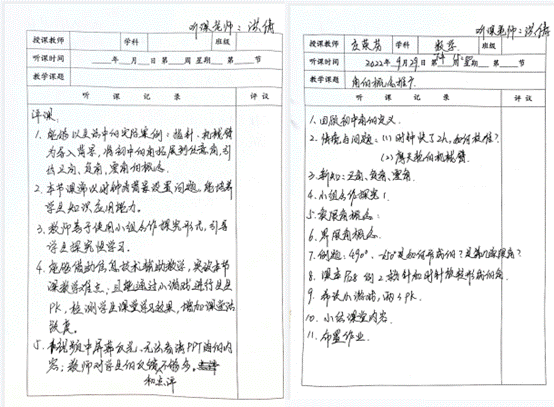 听课老师：洪倩
授课教师 学科 班级
听课时间 ____年__月__日第__周星期__第__节
教学课题
听 课 记 录 评 议
评课：
1. 能够以生活中的实际案例：指针、机械臂
为导入背景，将初中的角拓展到任意角，引
出正角、负角、零角的概念。
2. 本节课能以时钟为背景设置问题，能培养
学生知识应用能力。
3. 教师善于使用小组合作探究形式，引导
学生探究促学习。
4. 能够借助信息技术辅助教学，突破本节
课教学难点；且能通过小游戏进行生生
PK，检测学生课堂学习效果，增加课堂活
跃度。
5. 视频中屏幕反光，无法看清PPT上的内
容；教师对学生的反馈不够多。
和点评
听课老师：洪倩
授课教师 学科 数学 班级
听课时间 2022年9月29日 第 周星期 第 节
教学课题 角的概念推广
听 课 记 录 评 议
1. 回顾初中角的定义.
2. 情境与问题：(1) 时钟快了2h，如何校准？
(2) 摩天轮的机械臂.
3. 新知：正角、负角、零角.
4. 小组合作探究1
5. 象限角概念：
6. 界限角概念.
7. 例题：490°、-250°是如何形成的？是第几象限角？
8. 例2. 转针和时针旋转形成的角.
9. 希沃小游戏，两人PK.
10. 小结课堂内容.
11. 布置作业.